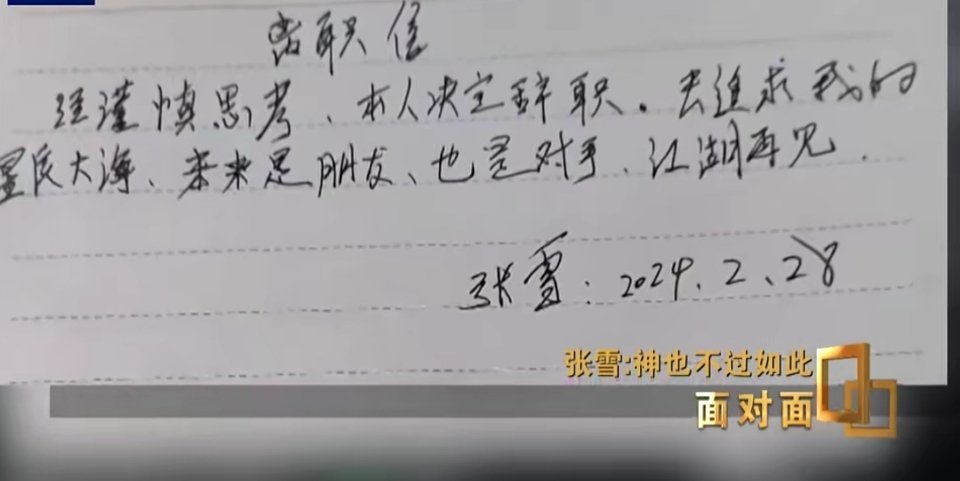 离职信
经谨慎思考、本人决定辞职。去追求我的
星辰大海、未来是朋友、也是对手、江湖再见.
张雪:2024.2、28
张雪:神也不过如此
面对面